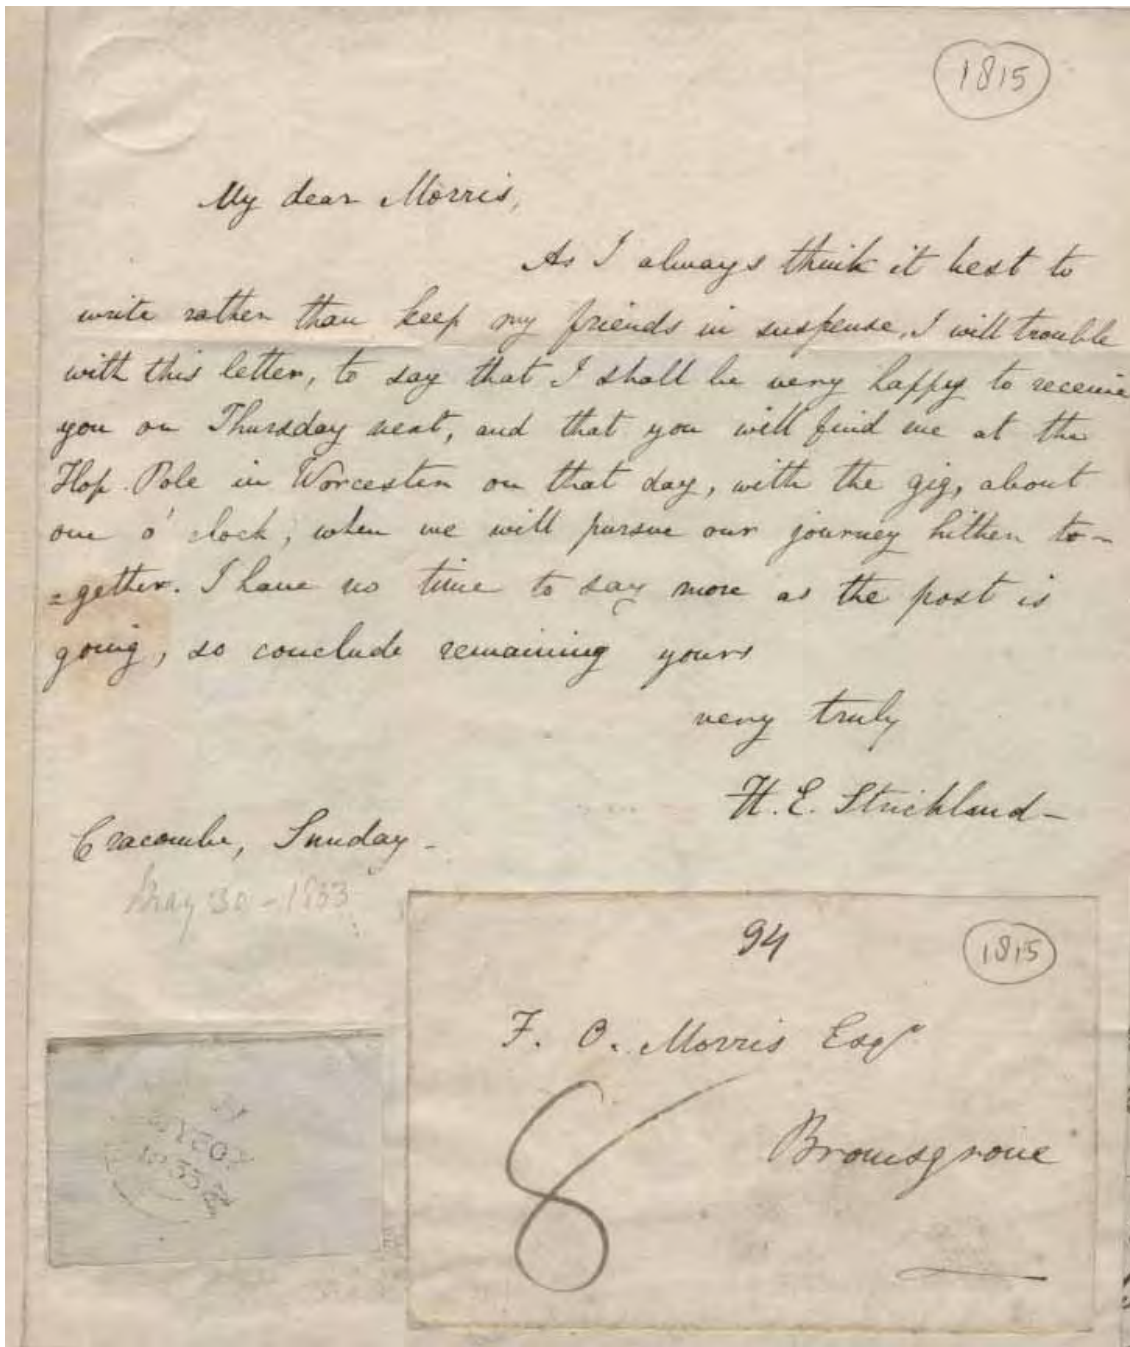 1815
My dear Morris,
As I always think it best to
write rather than keep my friends in suspense, I will trouble
with this letter, to say that I shall be very happy to receive
you on Thursday next, and that you will find me at the
Hop Pole in Worcester on that day, with the gig, about
one o' clock, when we will pursue our journey hither to-
=gether. I have no time to say more as the post is
going, so conclude remaining yours
very truly
H. E. Strickland-
Cracombe, Sunday-
May 30-1833
94
1815
F. O. Morris Esqr
8
Bromsgrove